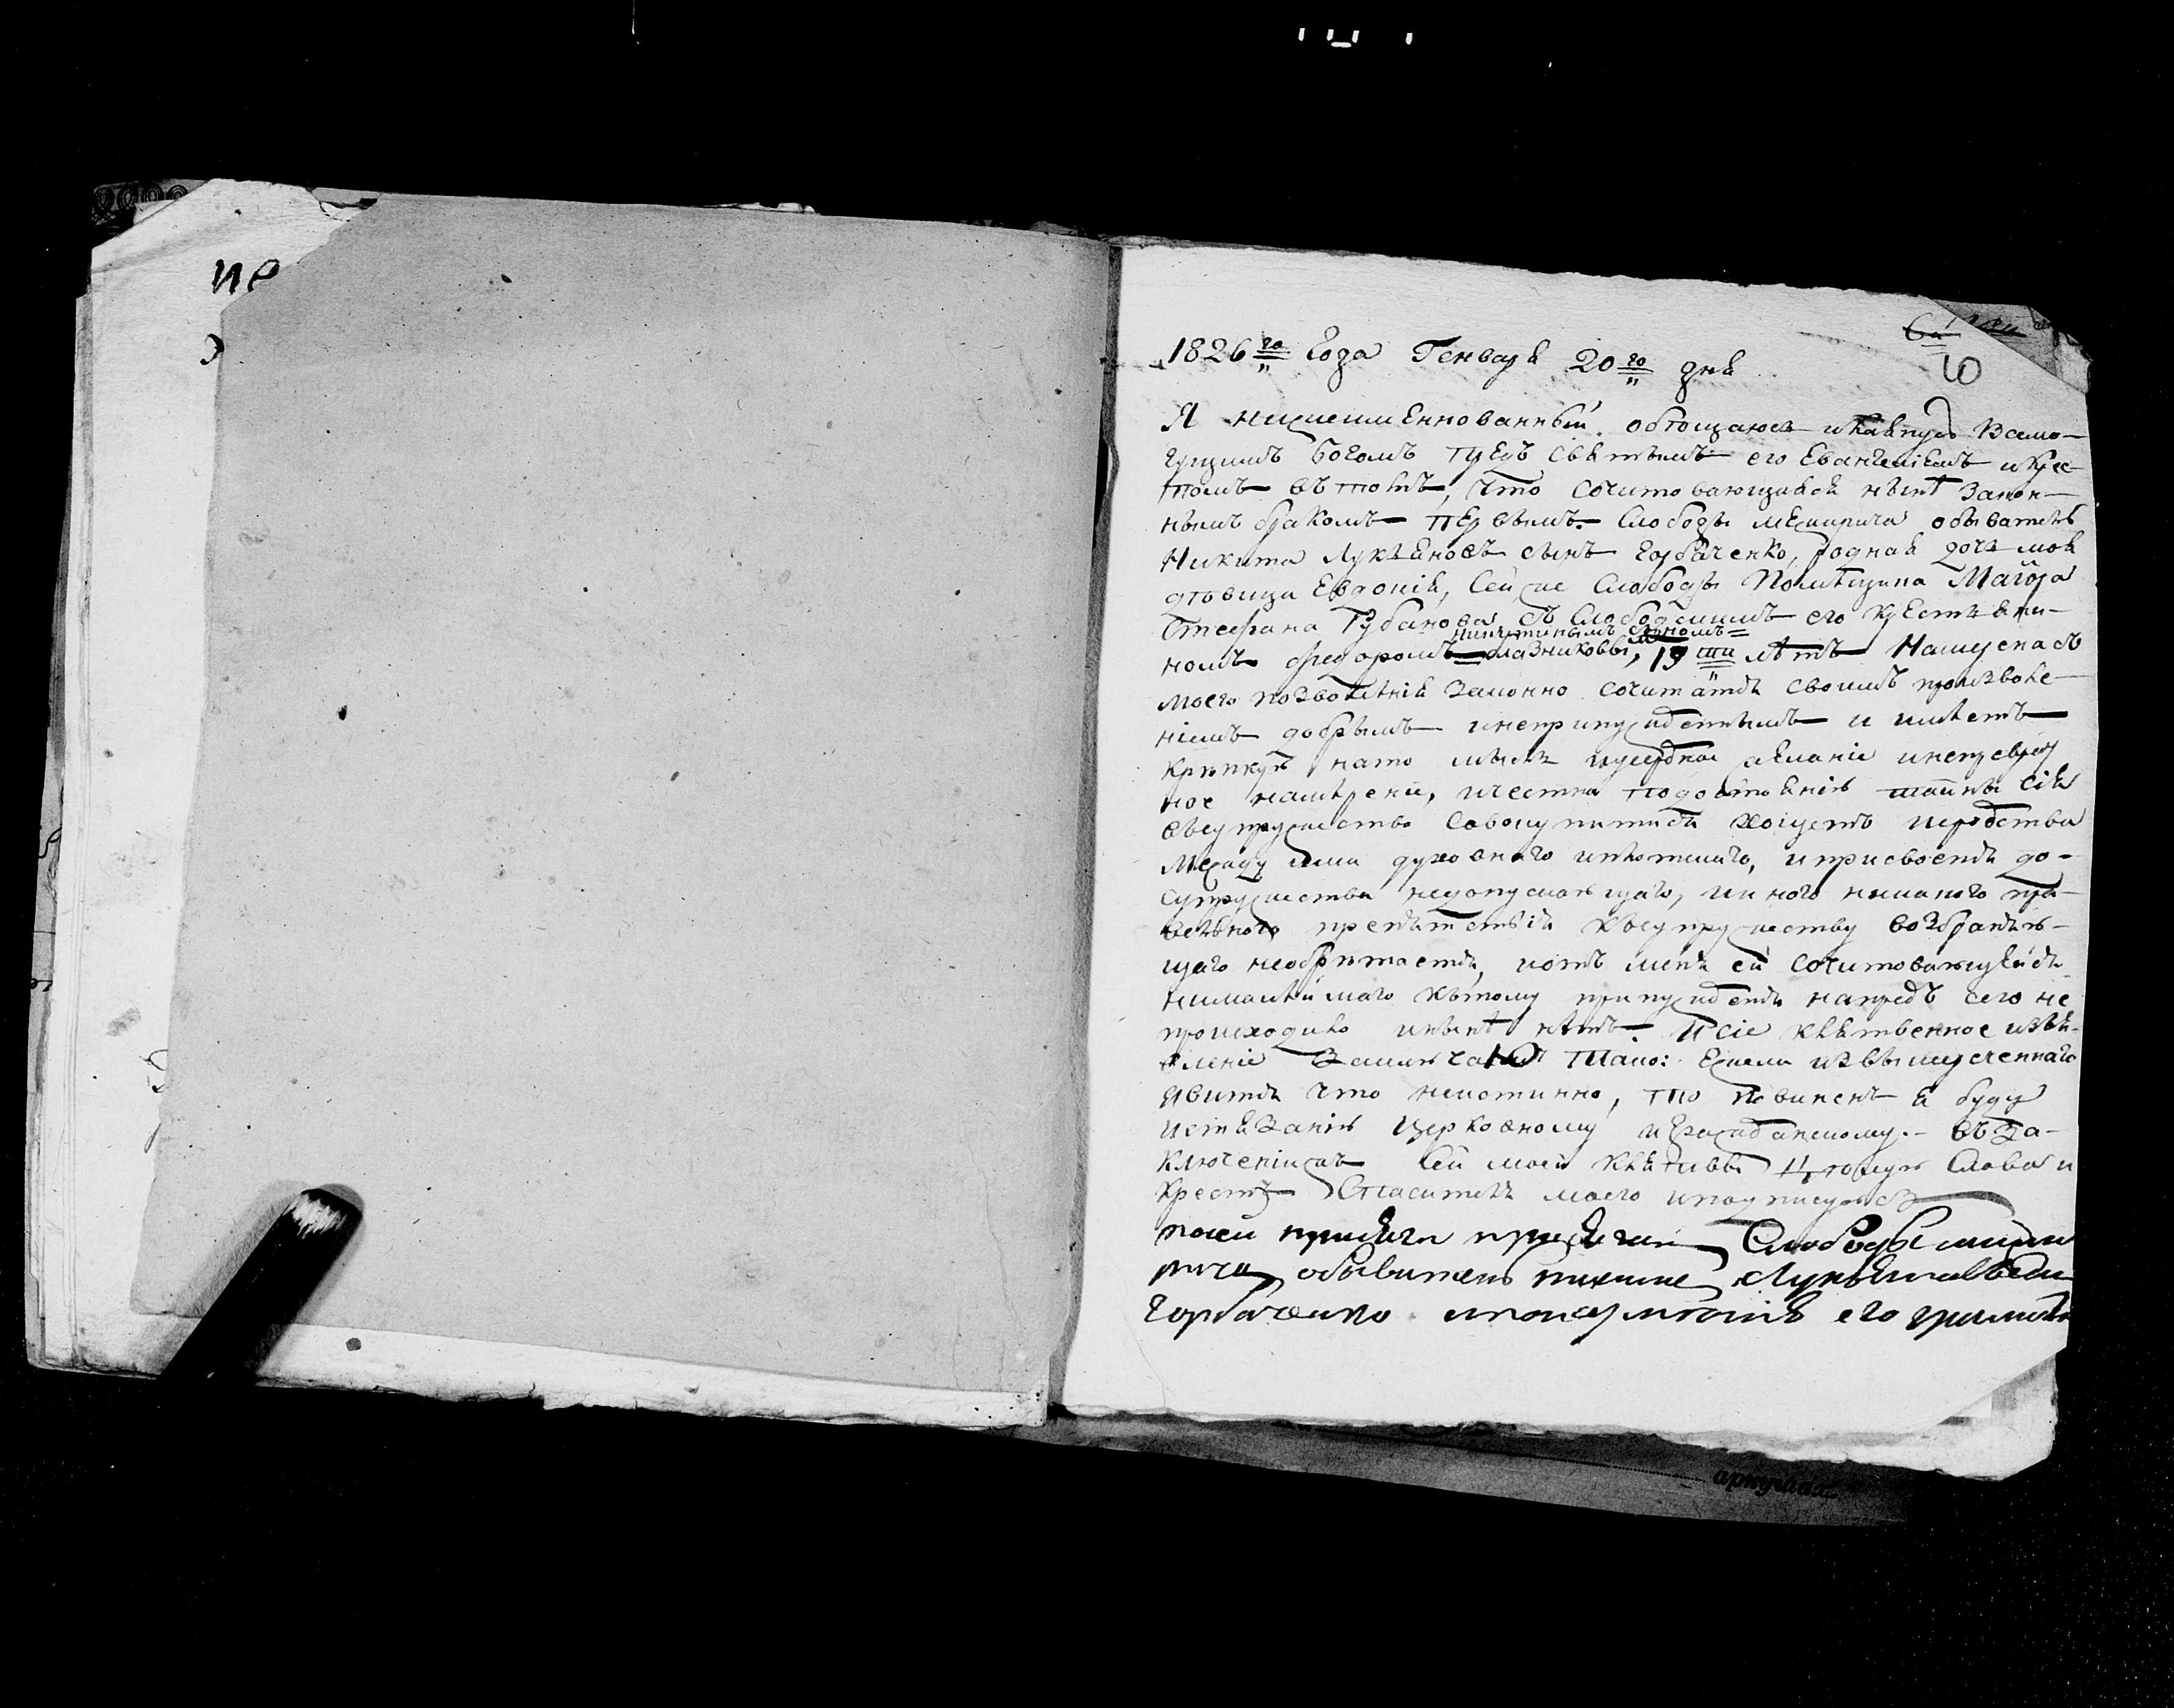 1826го Года Генваря 20го дня
6й
10
Я нижеименнованный обѣщаюсь и клянусь Всемо-
гущимъ Богомъ предъ святымъ его Евангелiемъ и крес-
томъ въ томъ, что сочитовающийся нынѣ закон-
нымъ бракомъ первымъ Слободы межирича обыватель
Никита Лукьяновъ сынъ Горбаченко, родная дочь моя
дѣвица Евдокiя, сей же Слободы Помѣщика Маiора
Стефана Губанова съ Слободскимъ его крестьяни-
никитинымъ сыномъ
номъ Федоромъ 19ти лѣтъ
моего позволенiя законно сочитатся своимъ произволе-
нiемъ добрымъ и непринужденнымъ и имѣетъ
крѣпкую на то мысль желанiе и непре
ное намѣренiе, и честна по достоянiю тайны сiя
въ супружество совокупитися хощетъ и родства
Между ими духовнаго и плотскаго, и присвоенiя до
супружества недопускающаго, иннаго никакого пра-
вильнаго препятствiя къ супружеству возбраняю-
щаго необрѣтается, и отъ меня ей сочитовающейся
нималѣйшаго къ тому принужденiя напредъ сего не
происходило и нынѣ нѣтъ И сiе клятвенное изъя-
вленiе заключаю тако: Ежели изъ вышереченнаго
явится что неистинно, то повиненъ я буду
истязанiю Церковному и Гражданскому. Въ за-
ключенiижъ сей моей клятвы Цѣлую Слова и
крестъ Спасителя моего и подписуюсь
по сей присяги присягалъ Слободы межи
рича обыватель никита Лукьяновъ сынъ
Горбаченко его
аркушах